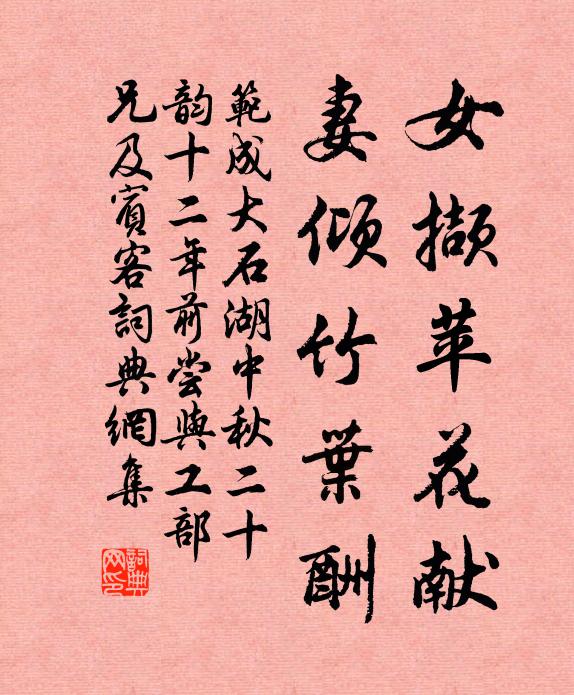 女撷苹花献
妻倾竹葉酬
範成大石湖中秋二十
韵十二年前尝與工部
兄及賓客詞典網集
詞典
网印